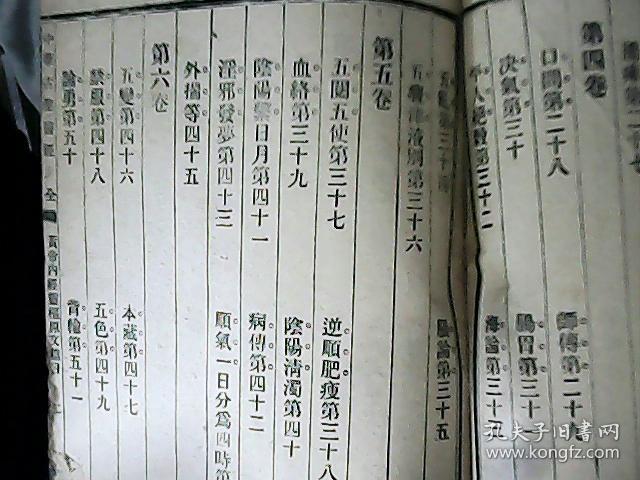 第四卷
口問第二十八
師傳第二十九
決氣第三十
腸胃第三十一
平人絕穀第三十二
海論第三十三
五亂第三十四
脹論第三十五
五癃津液別第三十六
第五卷
五閱五使第三十七
逆順肥瘦第三十八
血絡第三十九
陰陽清濁第四十
陰陽繫日月第四十一
病傳第四十二
淫邪發夢第四十三
順氣一日分爲四時第
外揣第四十五
第六卷
五變第四十六
本藏第四十七
禁服第四十八
五色第四十九
論勇第五十
背腧第五十一
黃帝內經靈樞原文
孔夫子旧书网